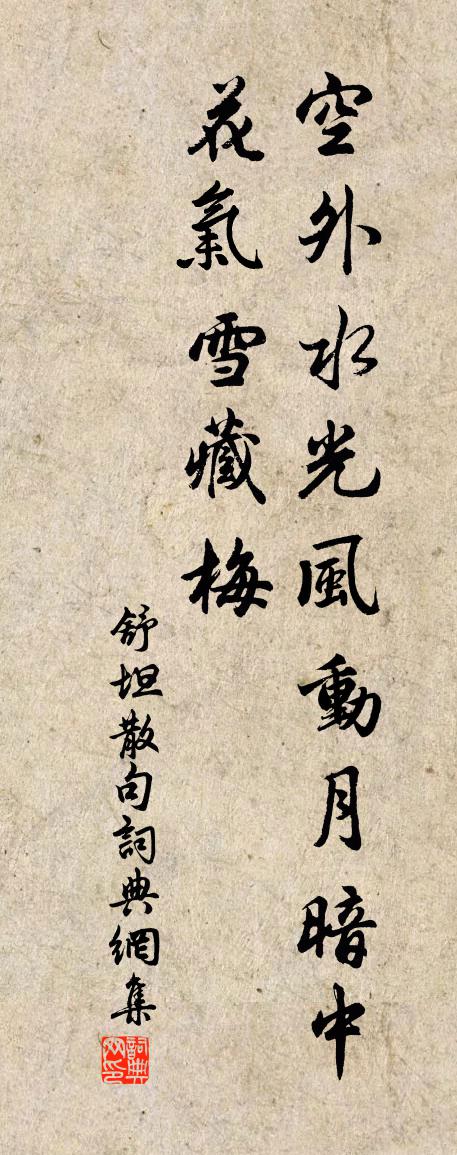 空外水光風動月暗中
花氣雪藏梅
舒坦散句詞典網集
詞典網印